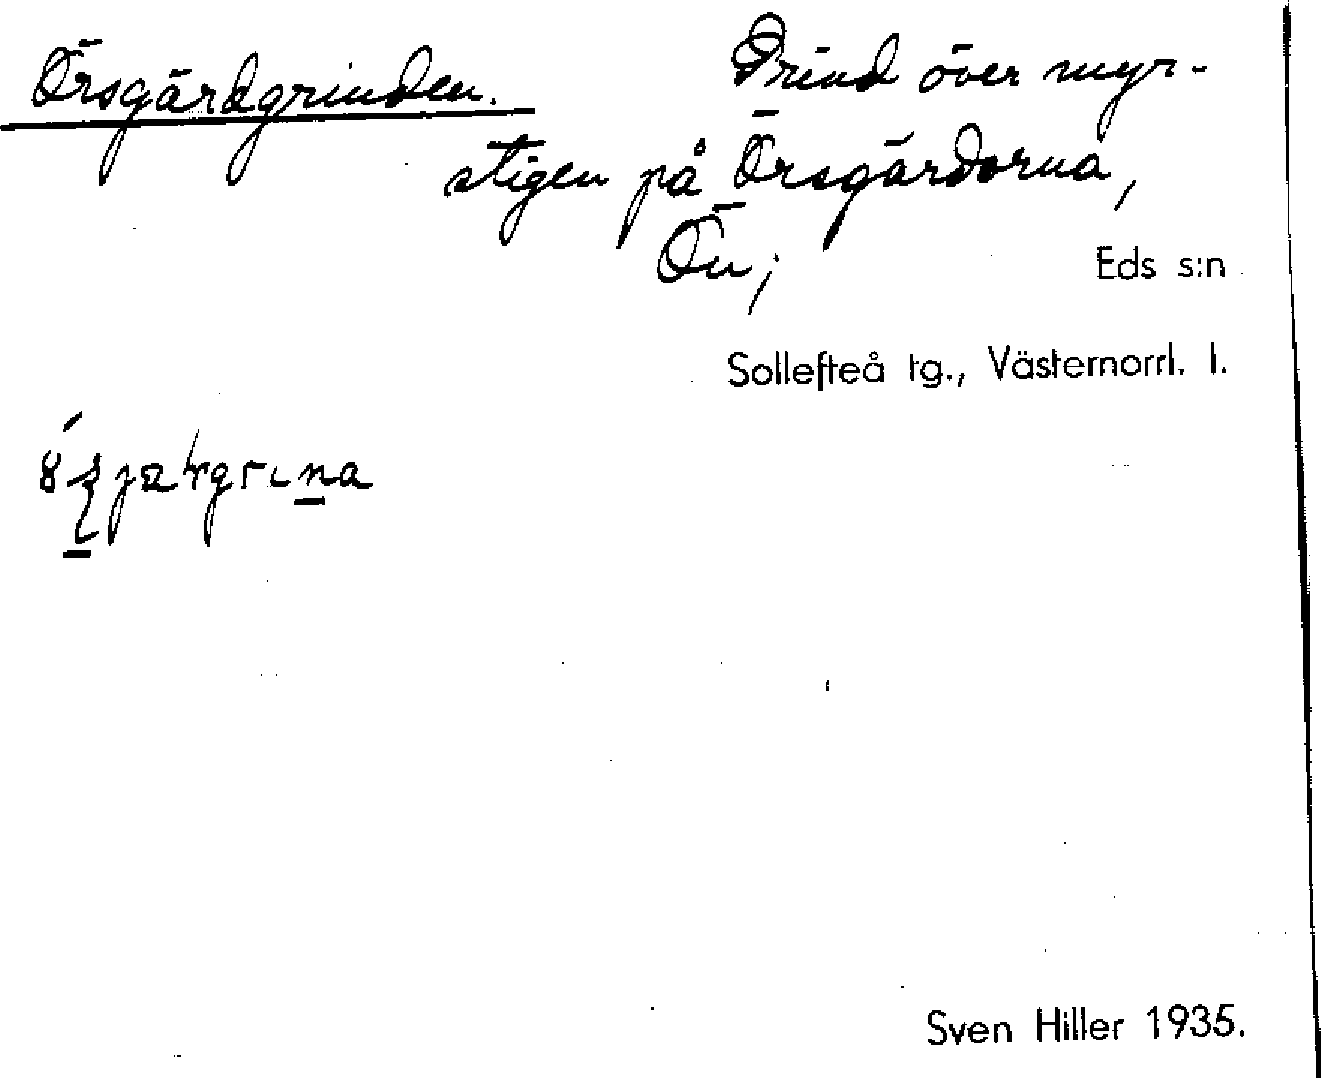 Örsgärdgrinden. Grind över myr-
stigen på Örsgärdorna,
Ön; Eds s:n
Sollefteå tg., Västernorrl. l.
Sven Hiller 1935.